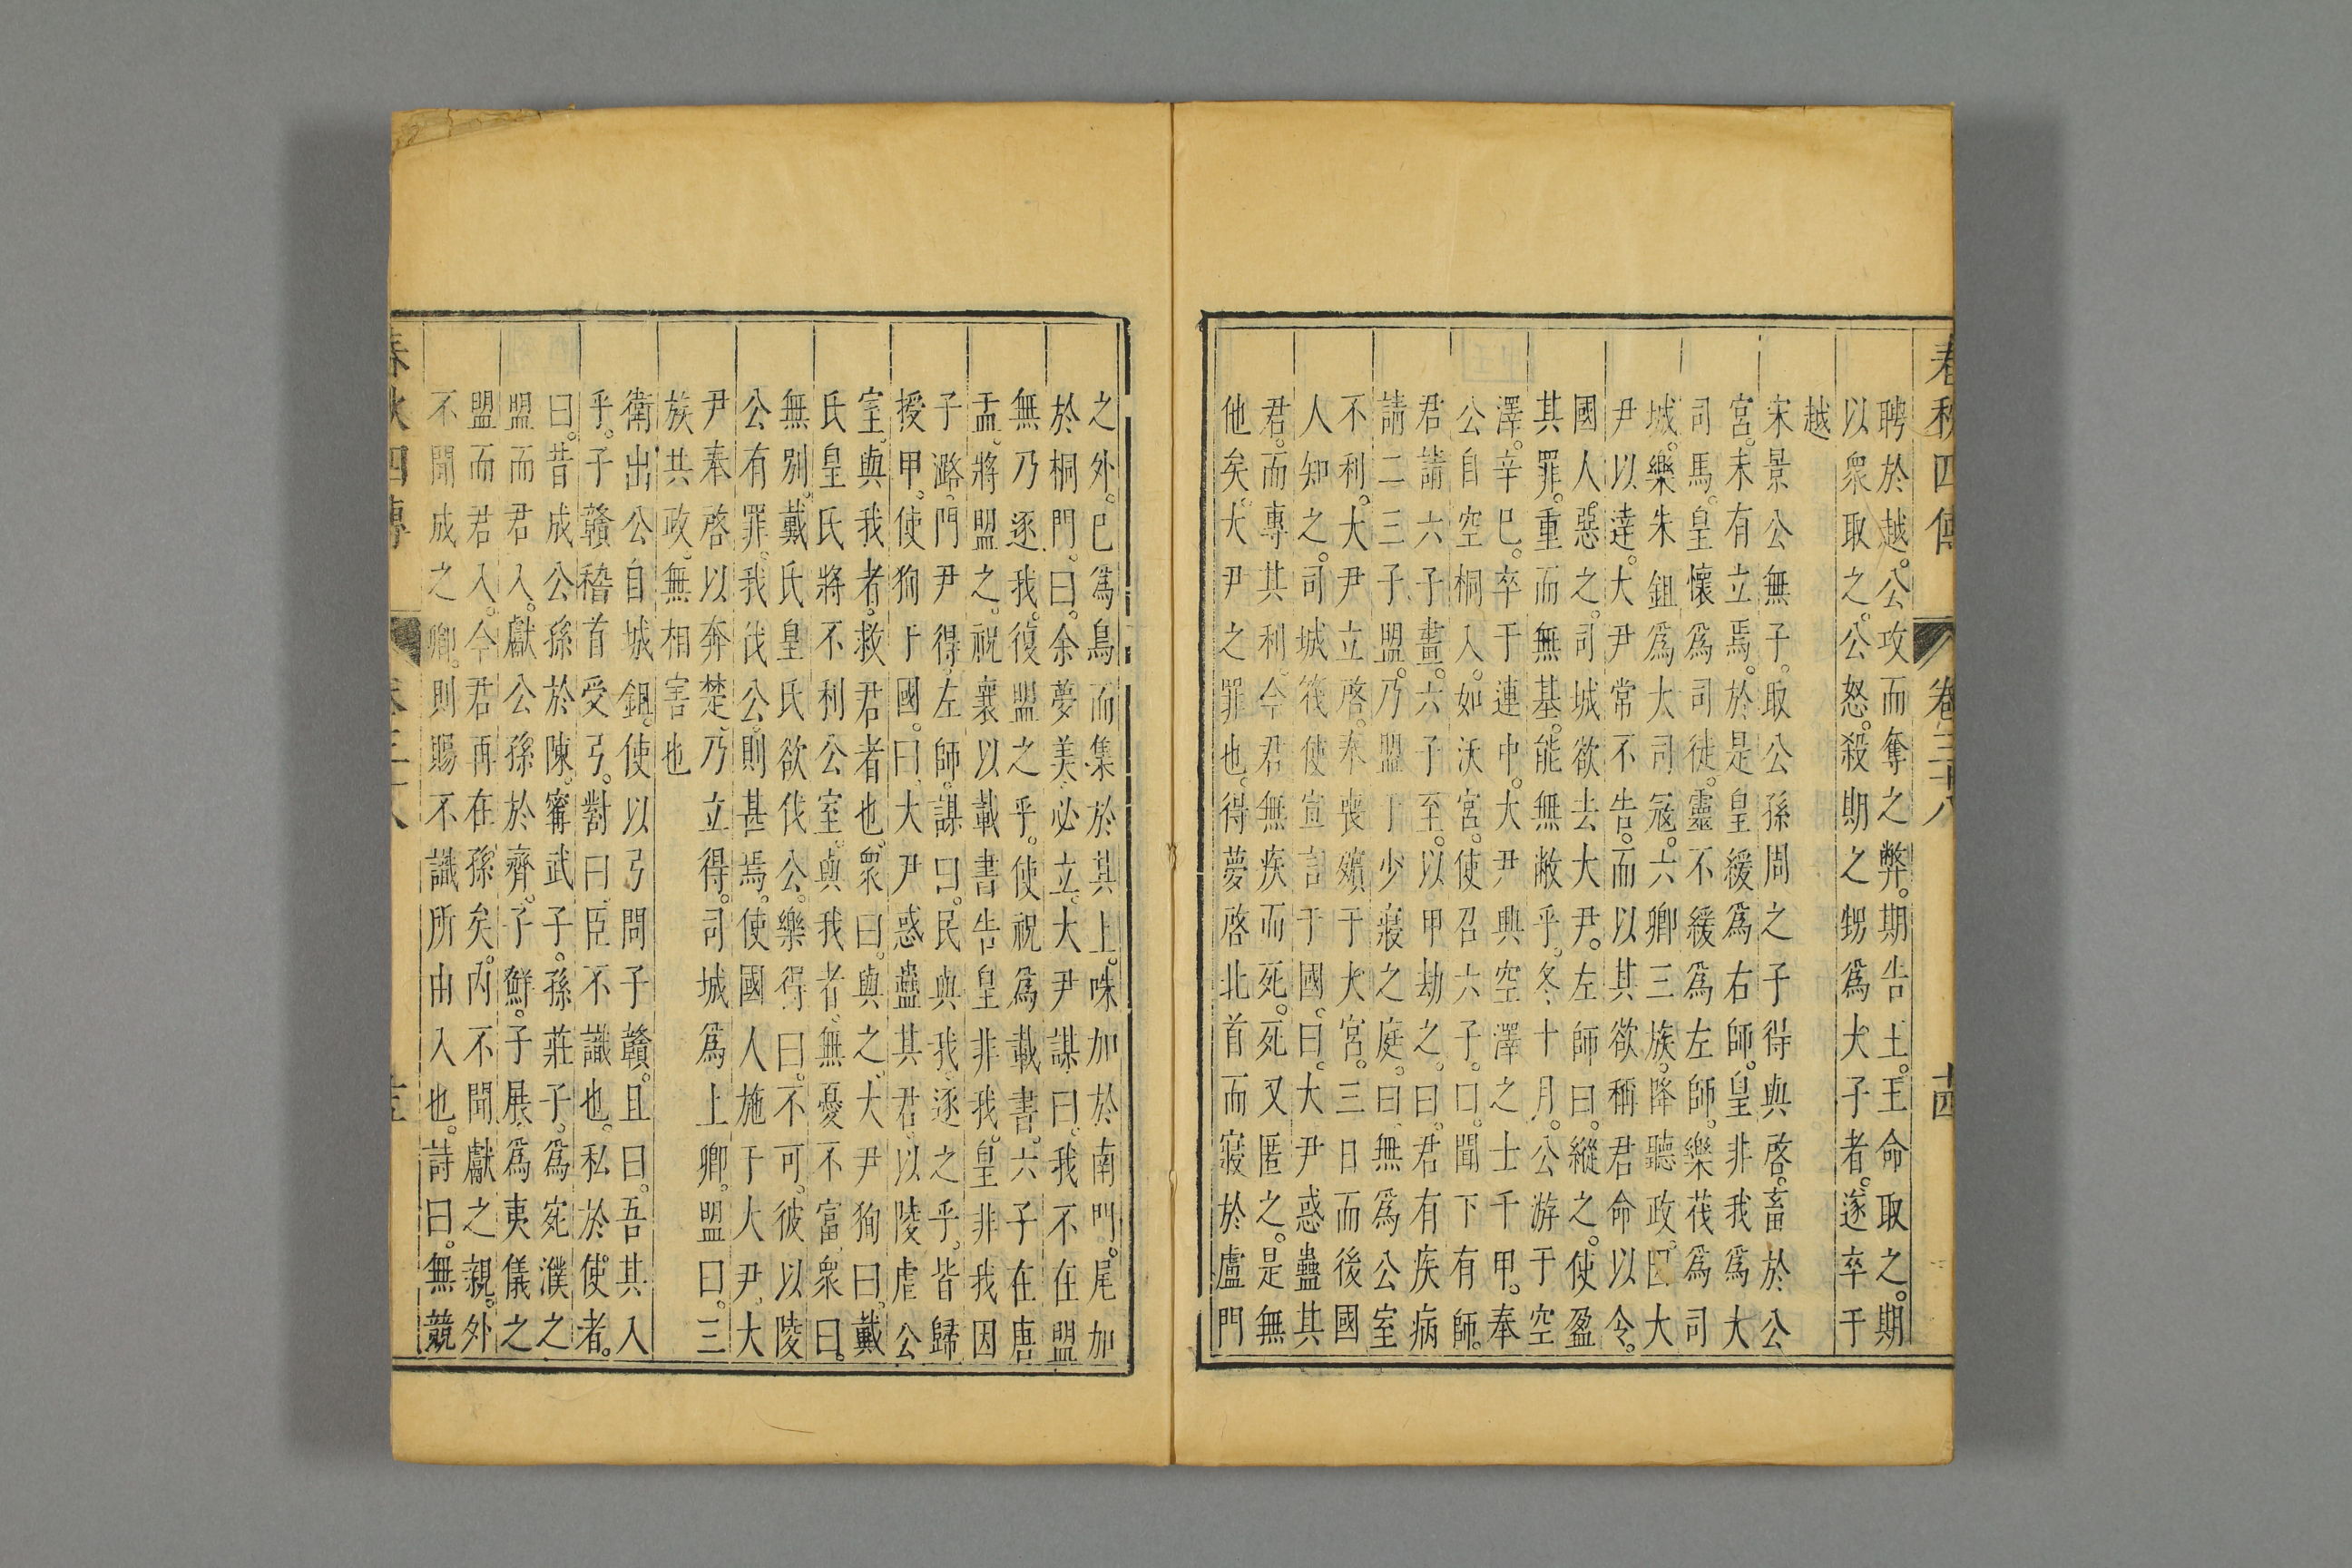 春秋四傳 卷三十八 十四
聘於越。公攻而奪之弊。期告王。王命取之。期
以衆取之。公怒。殺期之甥爲大子者。遂卒于
越
宋景公無子。取公孫周之子得與啓。畜於公
宮。未有立焉。於是皇緩爲右師。皇非我爲大
司馬。皇懷爲司徒。靈不緩爲左師。樂茷爲司
城。樂朱鉏爲大司冦。六卿三族。降聽政。因大
尹以達。大尹常不告。而以其欲稱君命以令。
國人。惡之。司城欲去大尹。左師曰。縱之。使盈
其罪。重而無基。能無敝乎。冬十月。公游于空
澤。辛巳。卒于連中。大尹興空澤之士千甲。奉
公自空桐入。如沃宮。使召六子。曰。聞下有師。
君請六子畫。六子至。以甲劫之。曰。君有疾病
請二三子盟。乃盟于少寢之庭。曰。無爲公室
不利。大尹立啓。奉喪殯于大宮。三日而後國
人知之。司城茷使宣言于國。曰。大尹惑蠱其
君。而專其利。今君無疾而死。死又匿之。是無
他矣。大尹之罪也。得夢啓北首而寢於盧門
之外。已爲鳥而集於其上。咮加於南門。尾加
於桐門。曰。余夢美。必立。大尹謀曰。我不在盟
無乃逐我。復盟之乎。使祝爲載書。六子在唐
盂。將盟之。祝襄以載書告皇非我。皇非我因
子潞。門尹得。左師。謀曰。民與我。逐之乎。皆歸
授甲。使狥于國。曰。大尹惑蠱其君。以陵虐公
室。與我者。救君者也。衆曰。與之。大尹狥曰。戴
氏皇氏將不利公室。與我者。無憂不富。衆曰。
無別。戴氏皇氏欲伐公。樂得曰。不可。彼以陵
公有罪。我伐公。則甚焉。使國人施于大尹。大
尹奉啓以奔楚。乃立得。司城爲上卿。盟曰。三
族共政。無相害也
衛出公自城鉏。使以弓問子贛。且曰。吾其入
乎。子贛稽首受弓。對曰。臣不識也。私於使者。
曰。昔成公孫於陳。甯武子。孫莊子。爲宛濮之
盟而君入。獻公孫於齊。子鮮。子展。爲夷儀之
盟而君入。今君再在孫矣。內不聞獻之親。外
不聞成之卿。則賜不識所由入也。詩曰。無競
春秋四傳 卷三十八 十五